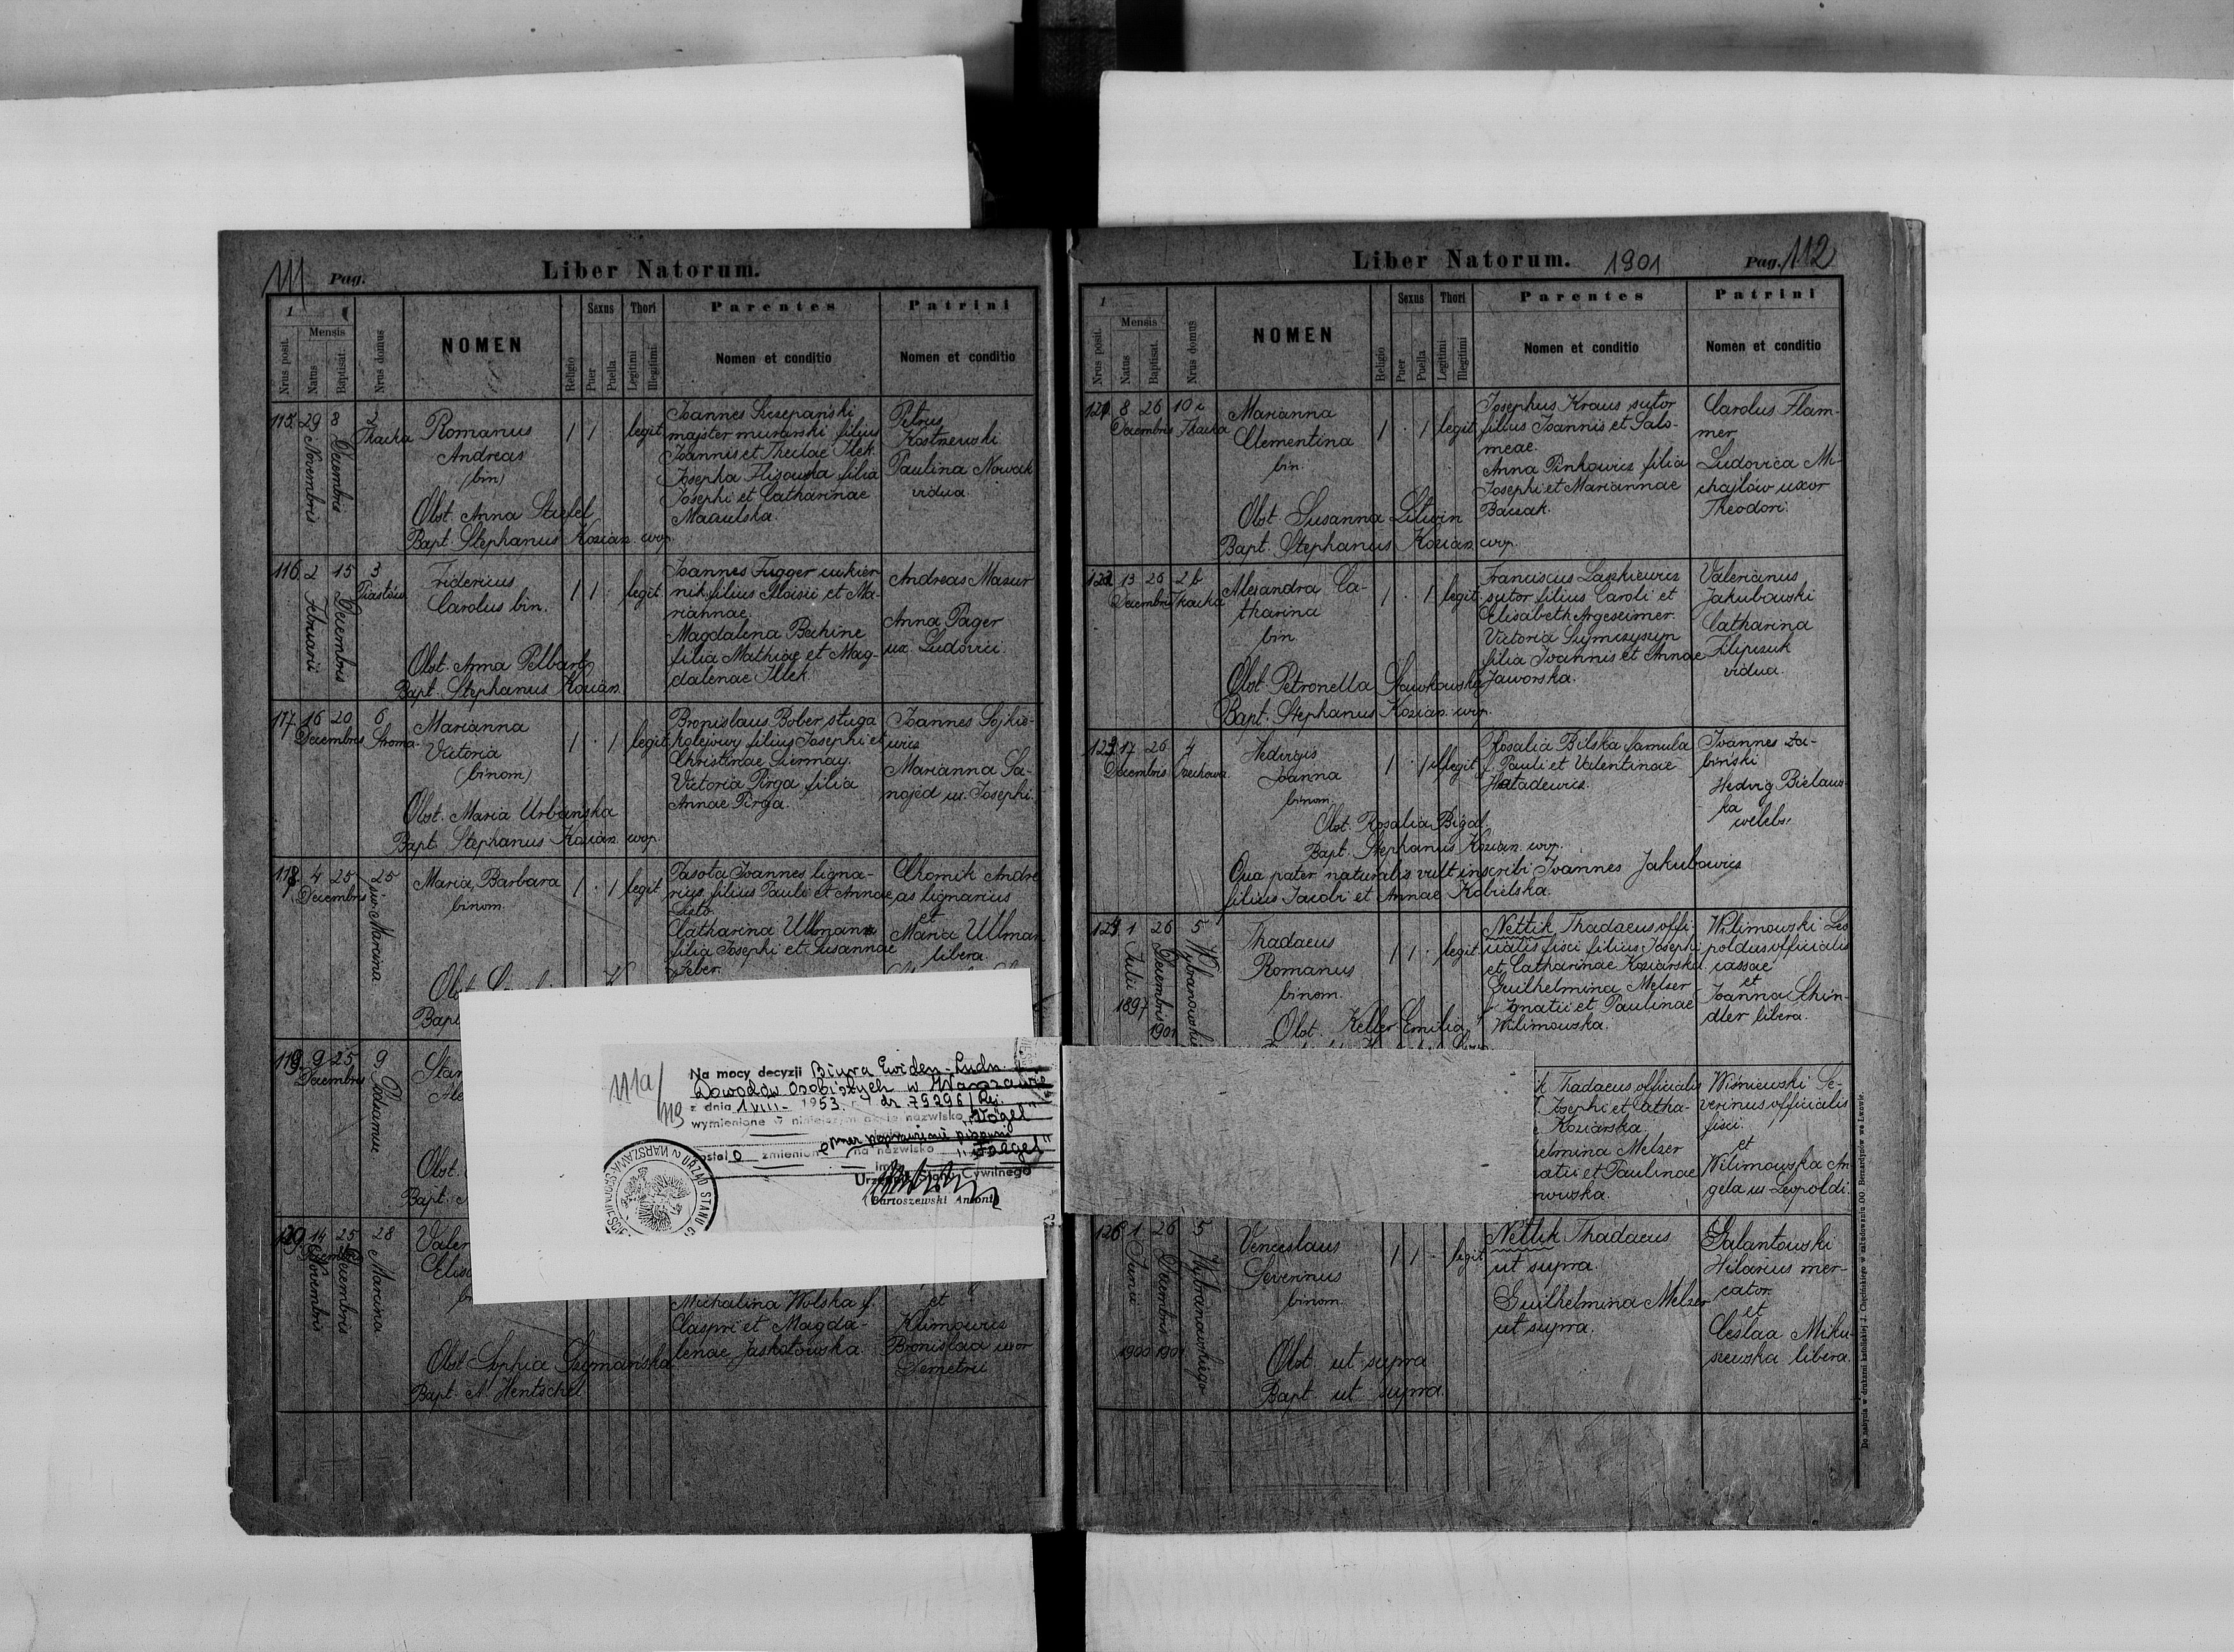 111 Pag.
Liber Natorum.
1
Nrus posit.
Mensis
Natus
Baptisat.
Nrus domus
NOMEN
Religio
Sexus
Puer
Puella
Thori
Legitimi
Illegitimi
Parentes
Nomen et conditio
Patrini
Nomen et conditio
115. 29 Novembris 8 Decembris 2 Tkacka
Romanus
Andreas
(bin)
Obst. Anna Stiefel
Bapt. Stephanus Kozian. wop.
1 1 legit
Joannes Szczepański
majster murarski filius
Joannis et Theclae Flek.
Josepha Flisowska filia
Josephi et Catharinae
Petrus
Kostrzewski
Paulina Nowak
vidua.
116. 2 Februarii 15 Decembris 3 Piastów
Fridericus
Carolus bin.
Obst. Anna Pelbart
Bapt. Stephanus Kozian.
1 1 legit
Joannes Fugger cukier
nik filius Aloisii et Ma-
riannae.
Magdalena Bechine
filia Mathiae et Mag-
dalenae Illek.
Andreas Mazur
Anna Pager
ux. Ludovici.
117. 16 20 Decembris 6 Stroma
Marianna
Victoria
(binom)
Obst. Maria Urbańska
Bapt. Stephanus Kozian. wop.
1 . 1 legit
Bronislaus Bober sługa
kolejowy filius Josephi et
Christinae Siermay.
Victoria Pirga filia
Annae Pirga.
Joannes Sojkie-
wicz
Marianna Sa-
nojed ux. Josephi.
118. 4 25 Decembris 25 św. Marcina
Maria Barbara
binom.
Obst.
Bapt.
1 . 1 legit
Pasota Joannes ligna-
rius, filius Pauli et Annae
Catharina Ullmann
filia Josephi et Susannae
Seber.
Chomik Andre
as lignarius
et
Maria Ullman
libera.
119. 9 25 Decembris 9. Podzamcze
Stan
Obst.
Bapt.
111a/119
Na mocy decyzji Biura Ewiden. Ludn. i
Dowodów Osobistych w Warszawie
z dnia 1 VIII - 1953. r. dr. 75296/Rej.
wymienione w niniejszym akcie nazwisko "Vogel"
został o zmienione na nazwisko "Faegel"
Urzędnik Stanu Cywilnego
(Bartoszewski Antoni)
14 Novembris 25 Decembris 28 Marcina
Valer
Elis
Obst Sophia Szymańska
Bapt. A. Hentschel
Michalina Wolska f.
Caspri et Magda-
lenae Jaskołowska.
et
Klimowicz
Bronislaa uxor
Demetrii
Liber Natorum. 1901 Pag. 112
1
Nrus posit.
Mensis
Natus
Baptisat.
Nrus domus
NOMEN
Religio
Sexus
Puer
Puella
Thori
Legitimi
Illegitimi
Parentes
Nomen et conditio
Patrini
Nomen et conditio
121. 8 26 Decembris 10 c Tkacka
Marianna
Clementina
bin.
Obst. Susanna Litwin
Bapt. Stephanus Kozian. wop.
1 . 1 legit
Josephus Kraus sutor
filius Joannis et Salo-
meae.
Anna Pinkowicz filia
Josephi et Mariannae
Baczak.
Carolus Flam-
mer
Ludovica Mi-
chajlów uxor
Theodori.
122. 13 26 Decembris 2 b Tkacka
Alexandra Ca-
tharina
bin.
Obst. Petronella Sławkowska
Bapt. Stephanus Kozian. wop.
1 . 1 legit
Franciscus Laszkiewicz
sutor filius Caroli et
Elisabeth Argeseimer.
Victoria Szymczyszyn
filia Joannis et Annae
Jaworska.
Valerianus
Jakubowski
Catharina
Filipczuk
vidua.
123. 17 26 Decembris 4 Czechowa
Hedvigis
Joanna
binom.
Obst. Rosalia Bigal.
Bapt. Stephanus Kozian. wop.
Qua pater naturalis vult inscribi Joannes Jakubowicz
filius Jacobi et Annae Kobielska.
1 . 1 illegit
Rosalia Bilska famula
f. Pauli et Valentinae
Hatadewicz.
Joannes Ża-
biński
Hedvig Bielaws-
ka
124. 1 Julii 1897 26 Decembris 1901 5 Wybranowskiego
Thadaeus
Romanus
binom.
Obst. Keller Emilia
1 1 . legit
Nettik Thadaeus offi-
cialis fisci filius Josephi
et Catharinae Koziarska.
Guilhelmina Melzer
f. Ignatii et Paulinae
Wilimowska.
Wilimowski Leo
poldus officialis
cassae
et
Joanna Schin-
dler libera.
k Thadaeus officialis
Josephi et Catha-
Koziarska.
elmina Melzer
natii et Paulinae
mowska.
Wiśniewski Se-
verinus officialis
fisci.
et
Wilimowska An
gela ux. Leopoldi.
126. 1 Junii 1900 26 Decembris 1901 5 Wybranowskiego
Venceslaus
Severinus
binom.
Obst. ut supra
Bapt. ut supra.
1 1 - legit
Nettik Thadaeus
ut supra.
Guilhelmina Melzer
ut supra.
Galantowski
Hilarius mer-
cator
et
Ceslaa Miku-
szewska libera.
Do nabycia w drukarni katolickiej J. Chęcińskiego w zabudowaniu OO. Bernardynów we Lwowie.